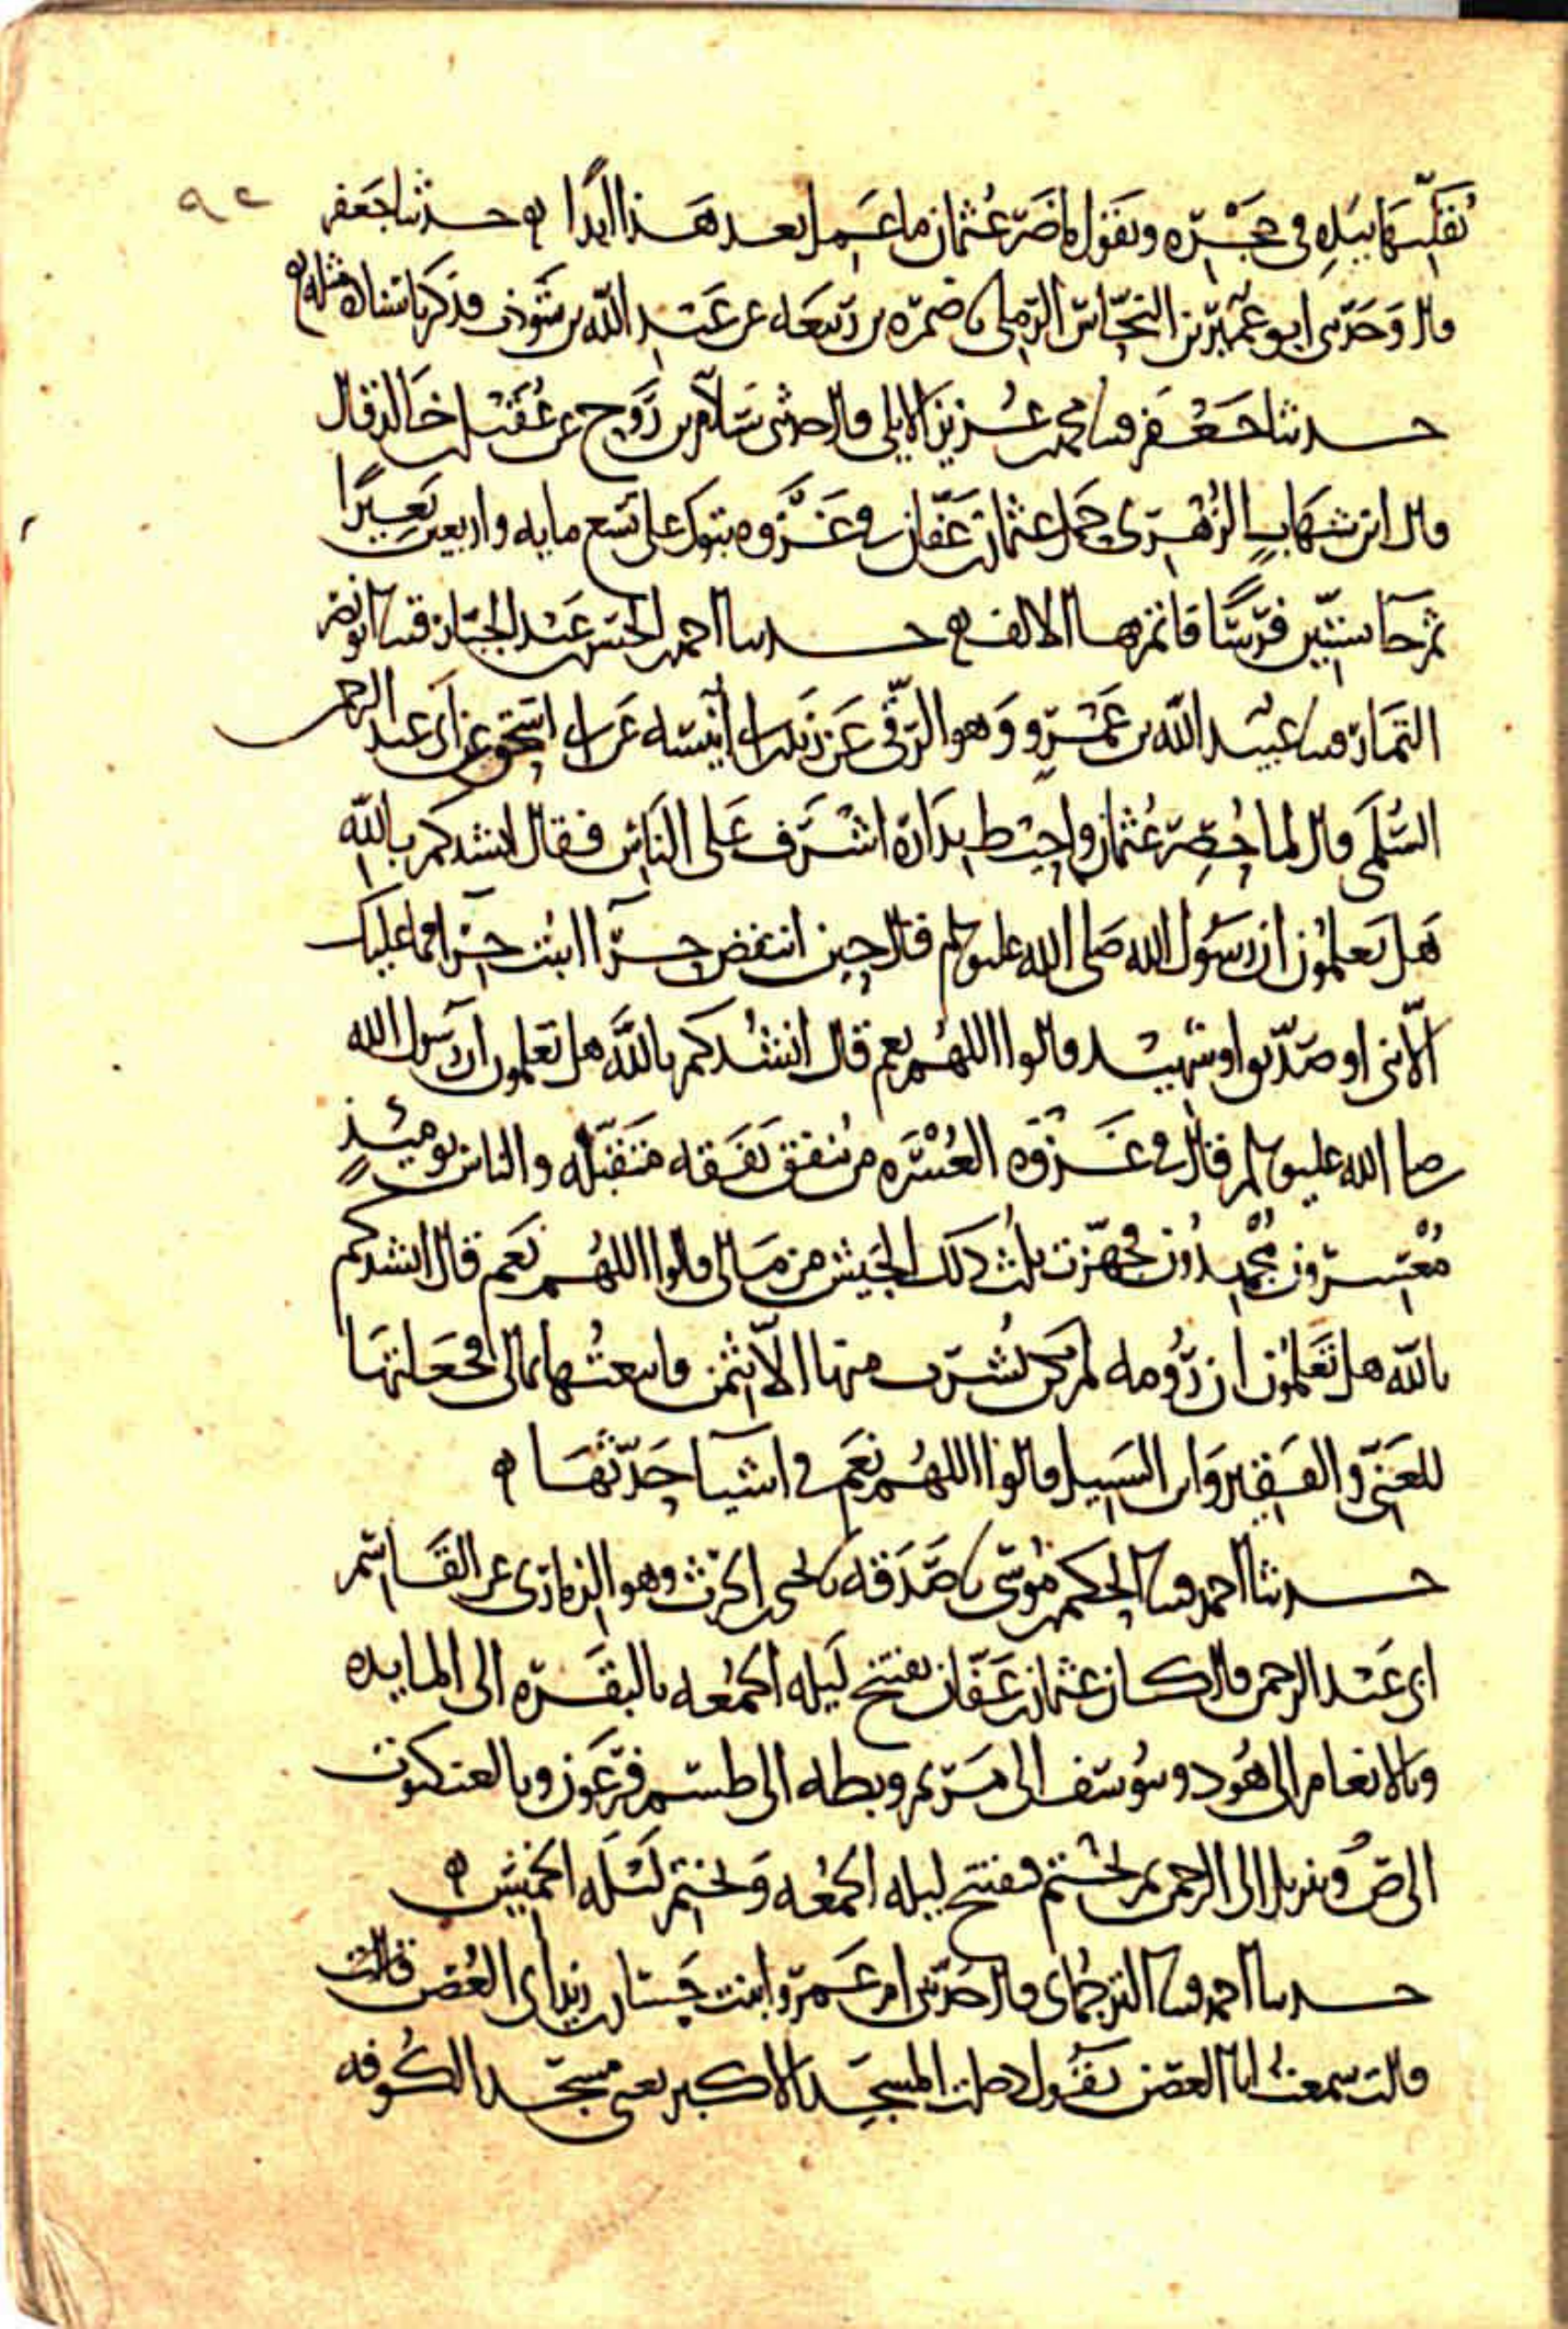 ٩٤
يُقلّبها بيده في حجره ويقول ما ضرّ عثمان ما عمل بعد هذا ابدًا ۞ حدثنا جعفر
قال وحدثني ابو عمير بن النحاس الرملي نا ضمرة بن ربيعة عن عبد الله بن شوذب فذكر باسناده مثله
حدثنا جعفر قثنا محمد بن عزيز الايلي قال حدثني سلامة بن روح عن عقيل بن خالد قال
قال ابن شهاب الزهري حمل عثمان بن عفان في غزوة تبوك على تسع مايه واربعين بعيرًا
ثم جا بستين فرسًا فاتم بها الالف ۞ حدثنا احمد بن الحسن بن عبد الجبار قثنا ابو نصر
التمار قثنا عبيد الله بن عمرو وهو الرقي عن زيد بن ابي أنيسه عن ابي اسحق عن ابي عبد الرحمن
السلمي قال لما حُصر عثمان واحيط بداره اشرف على الناس فقال انشدكم بالله
هل تعلمون ان رسول الله صلى الله عليه وسلم قال حين انتفض حرّا اثبت حرّا فما عليك
الّا نبي او صدّيق او شهيد قالوا اللهم نعم قال انشدكم بالله هل تعلمون ان رسول الله
صلى الله عليه وسلم قال في غزوه العُسره من ينفق نفقه متقبّله والناس يوميئذٍ
مُعسرون مجهدون فجهّزت ثلث ذلك الجيش من مالي قالوا اللهم نعم قال انشدكم
بالله هل تعلمون ان رُومه لم يكن يُشرب منها الّا بثمن فابتعتها بمالي فجعلتها
للغنيّ والفقير وابن السبيل قالوا اللهم نعم في اشيا حدّثها ۞
حدثنا احمد قثنا الحكم بن موسى نا صدقه نا يحيى بن الحرث وهو الذماري عن القاسم
ابي عبد الرحمن قال كان عثمان بن عفّان يفتتح ليله الجمعه بالبقره الى المايده
وبالانعام الى هود وبيوسف الى مريم وبطه الى طسم فرعون وبالعنكبوت
الى ص وبتنزيل الى الرحمن ثم يختم يفتتح ليله الجمعه ويختم ليله الخميس ۞
حدثنا احمد قثنا الترجماني قال حدثتني ام عمرو ابنت حسان بن زيد ابي الغصن قالت
قالت سمعت ابا الغصن يقول دخلت المسجد الاكبر يعني مسجد الكوفه